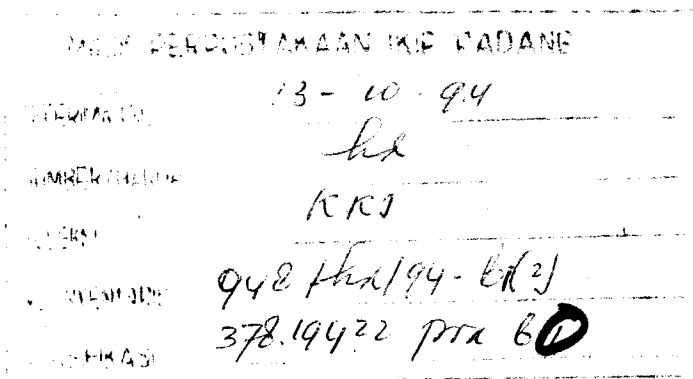 MILIK PERPUSTAKAAN IKIP PADANG
DITERIMA TGL 13 - 10 - 94
SUMBER/HARGA hd
KOLEKSI KKI
948/hd/94-b1(2)
KLASIFIKASI 378.19422 pra b1